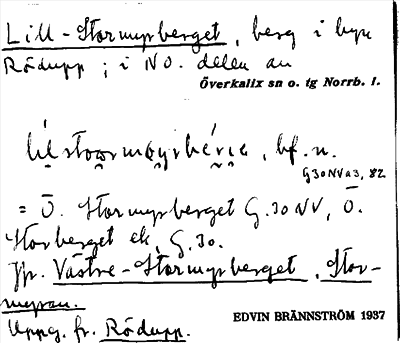 Lill-Stormyrberget, berg i byn
Rödupp; i NO. delen av
Överkalix sn o. tg Norrb. l.
bf. n.
G30NVa3, 82
= Ö. Stormyrberget G.30 NV, Ö.
Storberget ek. G.30.
Jfr. Västre-Stormyrberget, Stor-
myran.
Uppg. fr. Rödupp.
EDVIN BRÄNNSTRÖM 1937